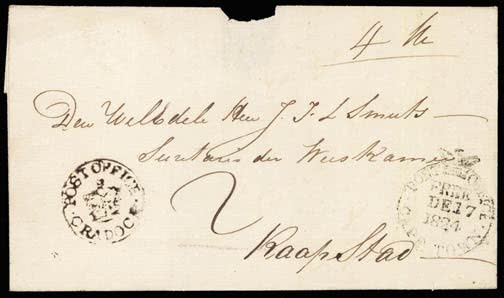 Den WelEdele Heer J. J. L Smuts
Secretaris der Weeskamer
2
Kaap Stad
POST OFFICE
CRADOCK
POST OFFICE
FREE
DE 17
1824
CAPE TOWN